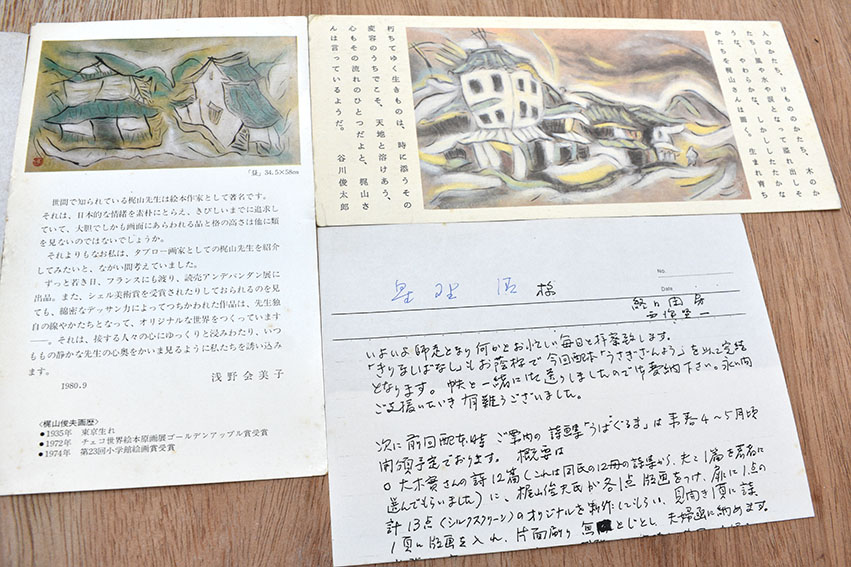 34.5×58cm
世間で知られている梶山先生は絵本作家として著名です。
それは、日本的な情緒を素朴にとらえ、きびしいまでに追求し
ていて、大胆でしかも画面にあらわれる品と格の高さは他に類
を見ないのではないでしょうか。
それよりもなお私は、タブロー画家としての梶山先生を紹介
してみたいと、ながい間考えていました。
ずっと若き日、フランスにも渡り、読売アンデパンダン展に
出品。また、シェル美術賞を受賞されたりしておられるのを見
ても、綿密なデッサン力によってつちかわれた作品は、先生独
自の線やかたちとなって、オリジナルな世界をつくっています
――。それは、接する人々の心にゆっくりと浸みわたり、いつ
もの静かな先生の心奥をかいま見るように私たちを誘い込み
ます。
1980.9
浅野会美子
〈梶山俊夫画歴〉
●1935年 東京生れ
●1972年 チェコ世界絵本原画展ゴールデンアップル賞受賞
●1974年 第23回小学館絵画賞受賞
人のかたち、けもののかたち、木のか
たち―風や水や涙となって溢れ出しそ
うな、やわらかな、しかししたたかな
かたちを梶山さんは描く。生まれ育ち
朽ちてゆく生きものは、時に添うその
変容のうちでこそ、天地と溶けあう、
心もその流れのひとつだよと、梶山さ
んは言っているようだ。 谷川俊太郎
No.
Date
様
いよいよ師走となり何かとお忙しい毎日と拝察致します。
「きりなしばなし」もお蔭様で今回配本「うさぎさんよう」を以て完結
となります。帙と一緒にお送りしましたのでご査納下さい。永い間
ご支援いただき有難うございました。
次に前回配本時ご案内の詩画集「うばぐるま」は来春4〜5月頃
開領予定でおります。概要は
○ 大木実さんの詩12篇(これは同氏の12冊の詩集から、夫々1篇を著者に
選んでもらいました)に、梶山俊夫氏が各1点版画をつけ、扉に1点の
計13点(シルクスクリーン)のオリジナルを制作してもらい、見開き1頁に詩
1頁に版画を入れ、片面刷り無とじとし、夫婦函に納めます。